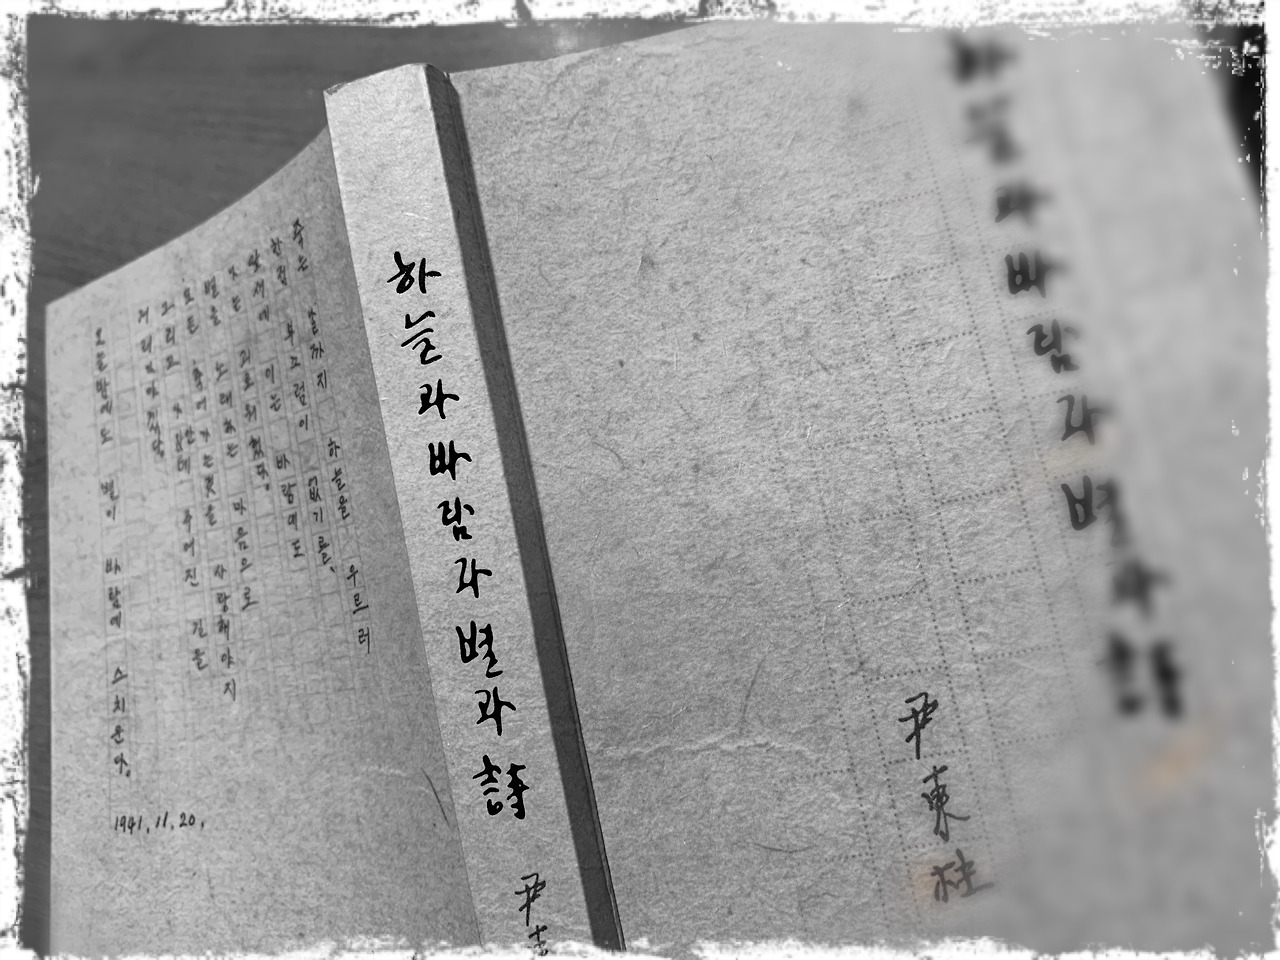 하늘과바람과별과詩
尹東柱
하늘과바람과별과詩
尹東
죽는 날까지 하늘을 우르러
한점 부끄럼이 없기를、
잎새에 이는 바람에도
나는 괴로워했다。
별을 노래하는 마음으로
모든 죽어가는것을 사랑해야지
그리고 나안테 주어진 길을
거러가야겠다。
오늘밤에도 별이 바람에 스치운다。
1941.11.20.